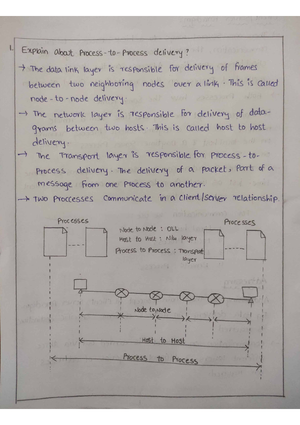 1. Explain about Process-to-Process delivery?
→ The data link layer is responsible for delivery of frames
between two neighboring nodes over a link. This is called
node-to-node delivery
→ The network layer is responsible for delivery of data-
grams between two hosts This is called host to host
delivery.
→ The Transport layer is responsible for process-to-
process delivery. The delivery of a packet, part of a
message from one process to another.
→ Two Processes communicate in a client/server relationship.
Processes
Processes
Node to Node : DLL
Host to Host : N/w layer
Process to Process : Transport
layer
Node to Node
Host to Host
Process to Process